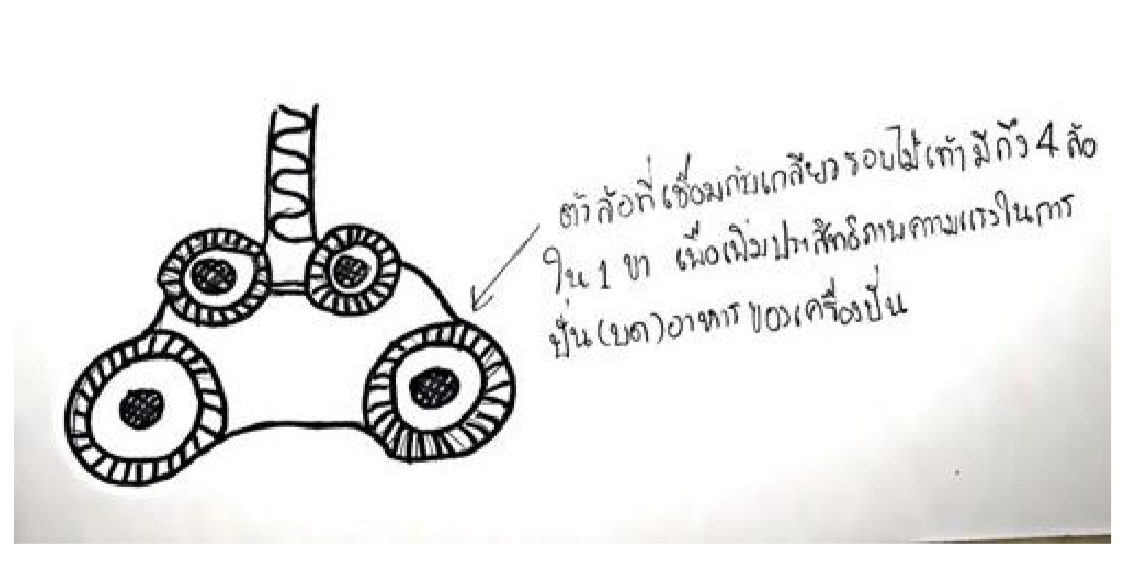 ตัวล้อที่เชื่อมกับเกลียวรอบไม้เท้ามีถึง 4 ล้อ
ใน 1 ขา เพื่อเพิ่มประสิทธิภาพความแรงในการ
ปั่น (บด) อาหารของเครื่องปั่น